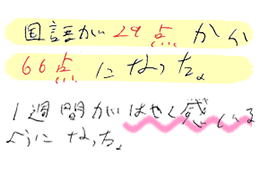 国語が29点から
66点になった。
1週間がはやく感じる
ようになった。